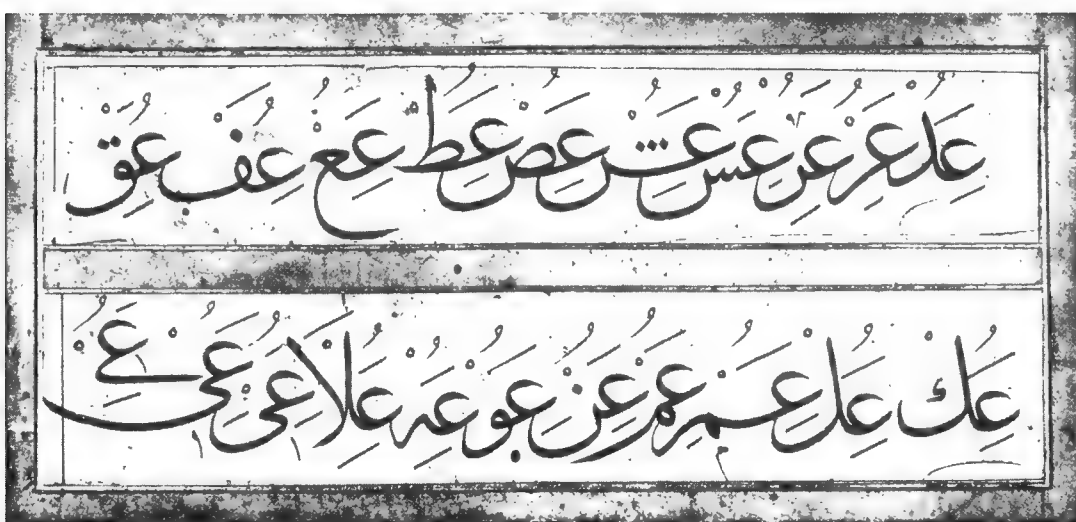 عد عر عر عس عش عص عط عع عف عق
عك عل عم عم عن عو عه علا عى عى عى